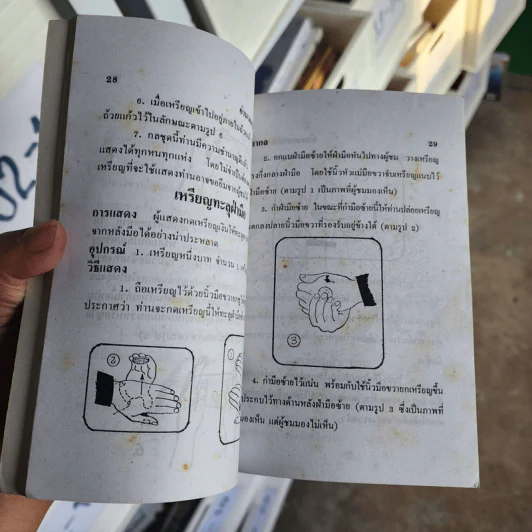 28
6. เมื่อเหรียญเข้าไปอยู่ภายใน
ถ้วยแก้วไว้ในลักษณะตามรูป 6
7. กลชุดนี้ท่านมีความชำนาญ
แสดงได้ทุกหนทุกแห่ง โดยไม่จำเป็น
เหรียญที่จะใช้แสดงท่านอาจขอยืมจาก
เหรียญทะลุฝ่ามือ
การแสดง ผู้แสดงกดเหรียญเงินให้
จากหลังมือได้อย่างน่าประหลาด
อุปกรณ์ 1. เหรียญหนึ่งบาท จำนวน 1
วิธีแสดง
1. ถือเหรียญไว้ด้วยนิ้วมือขวา
ประกาศว่า ท่านจะกดเหรียญนี้ให้ทะลุ
2
29
2. ยกแบฝ่ามือซ้ายให้ฝ่ามือหันไปทางผู้ชม วางเหรียญ
กึ่งกลางฝ่ามือ โดยใช้นิ้วหัวแม่มือขวาจับเหรียญแนบไว้
ฝ่ามือซ้าย (ตามรูป 1 เป็นภาพที่ผู้ชมมองเห็น)
3. กำฝ่ามือซ้าย ในขณะที่กำมือซ้ายนี้ให้ท่านปล่อยเหรียญ
ตกลงปลายนิ้วมือขวาที่รองรับอยู่ข้างใต้ (ตามรูป 2)
3
4. กำมือซ้ายไว้แน่น พร้อมกับใช้นิ้วมือขวายกเหรียญขึ้น
ประกบไว้ทางด้านหลังฝ่ามือซ้าย (ตามรูป 3 ซึ่งเป็นภาพที่
มองเห็น แต่ผู้ชมมองไม่เห็น)